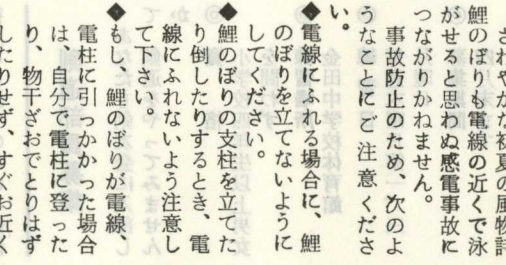 さわやかな初夏の風物詩
鯉のぼりも電線の近くで泳
がせると思わぬ感電事故に
つながりかねません。
事故防止のため、次のよ
うなことにご注意くださ
い。
◆電線にふれる場合に、鯉
のぼりを立てないように
して下さい。
◆鯉のぼりの支柱を立てた
り倒したりするとき、電
線にふれないよう注意し
て下さい。
◆もし、鯉のぼりが電線、
電柱に引っかかった場合
は、自分で電柱に登った
り、物干ざおでとりはず
したりせず、すぐお近く